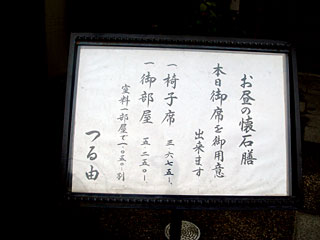 お昼の懐石膳
本日御席を御用意
出来ます
一 椅子席 三六七五-
一 御部屋 五二五〇-
室料一部屋で一〇五〇-別
つる由